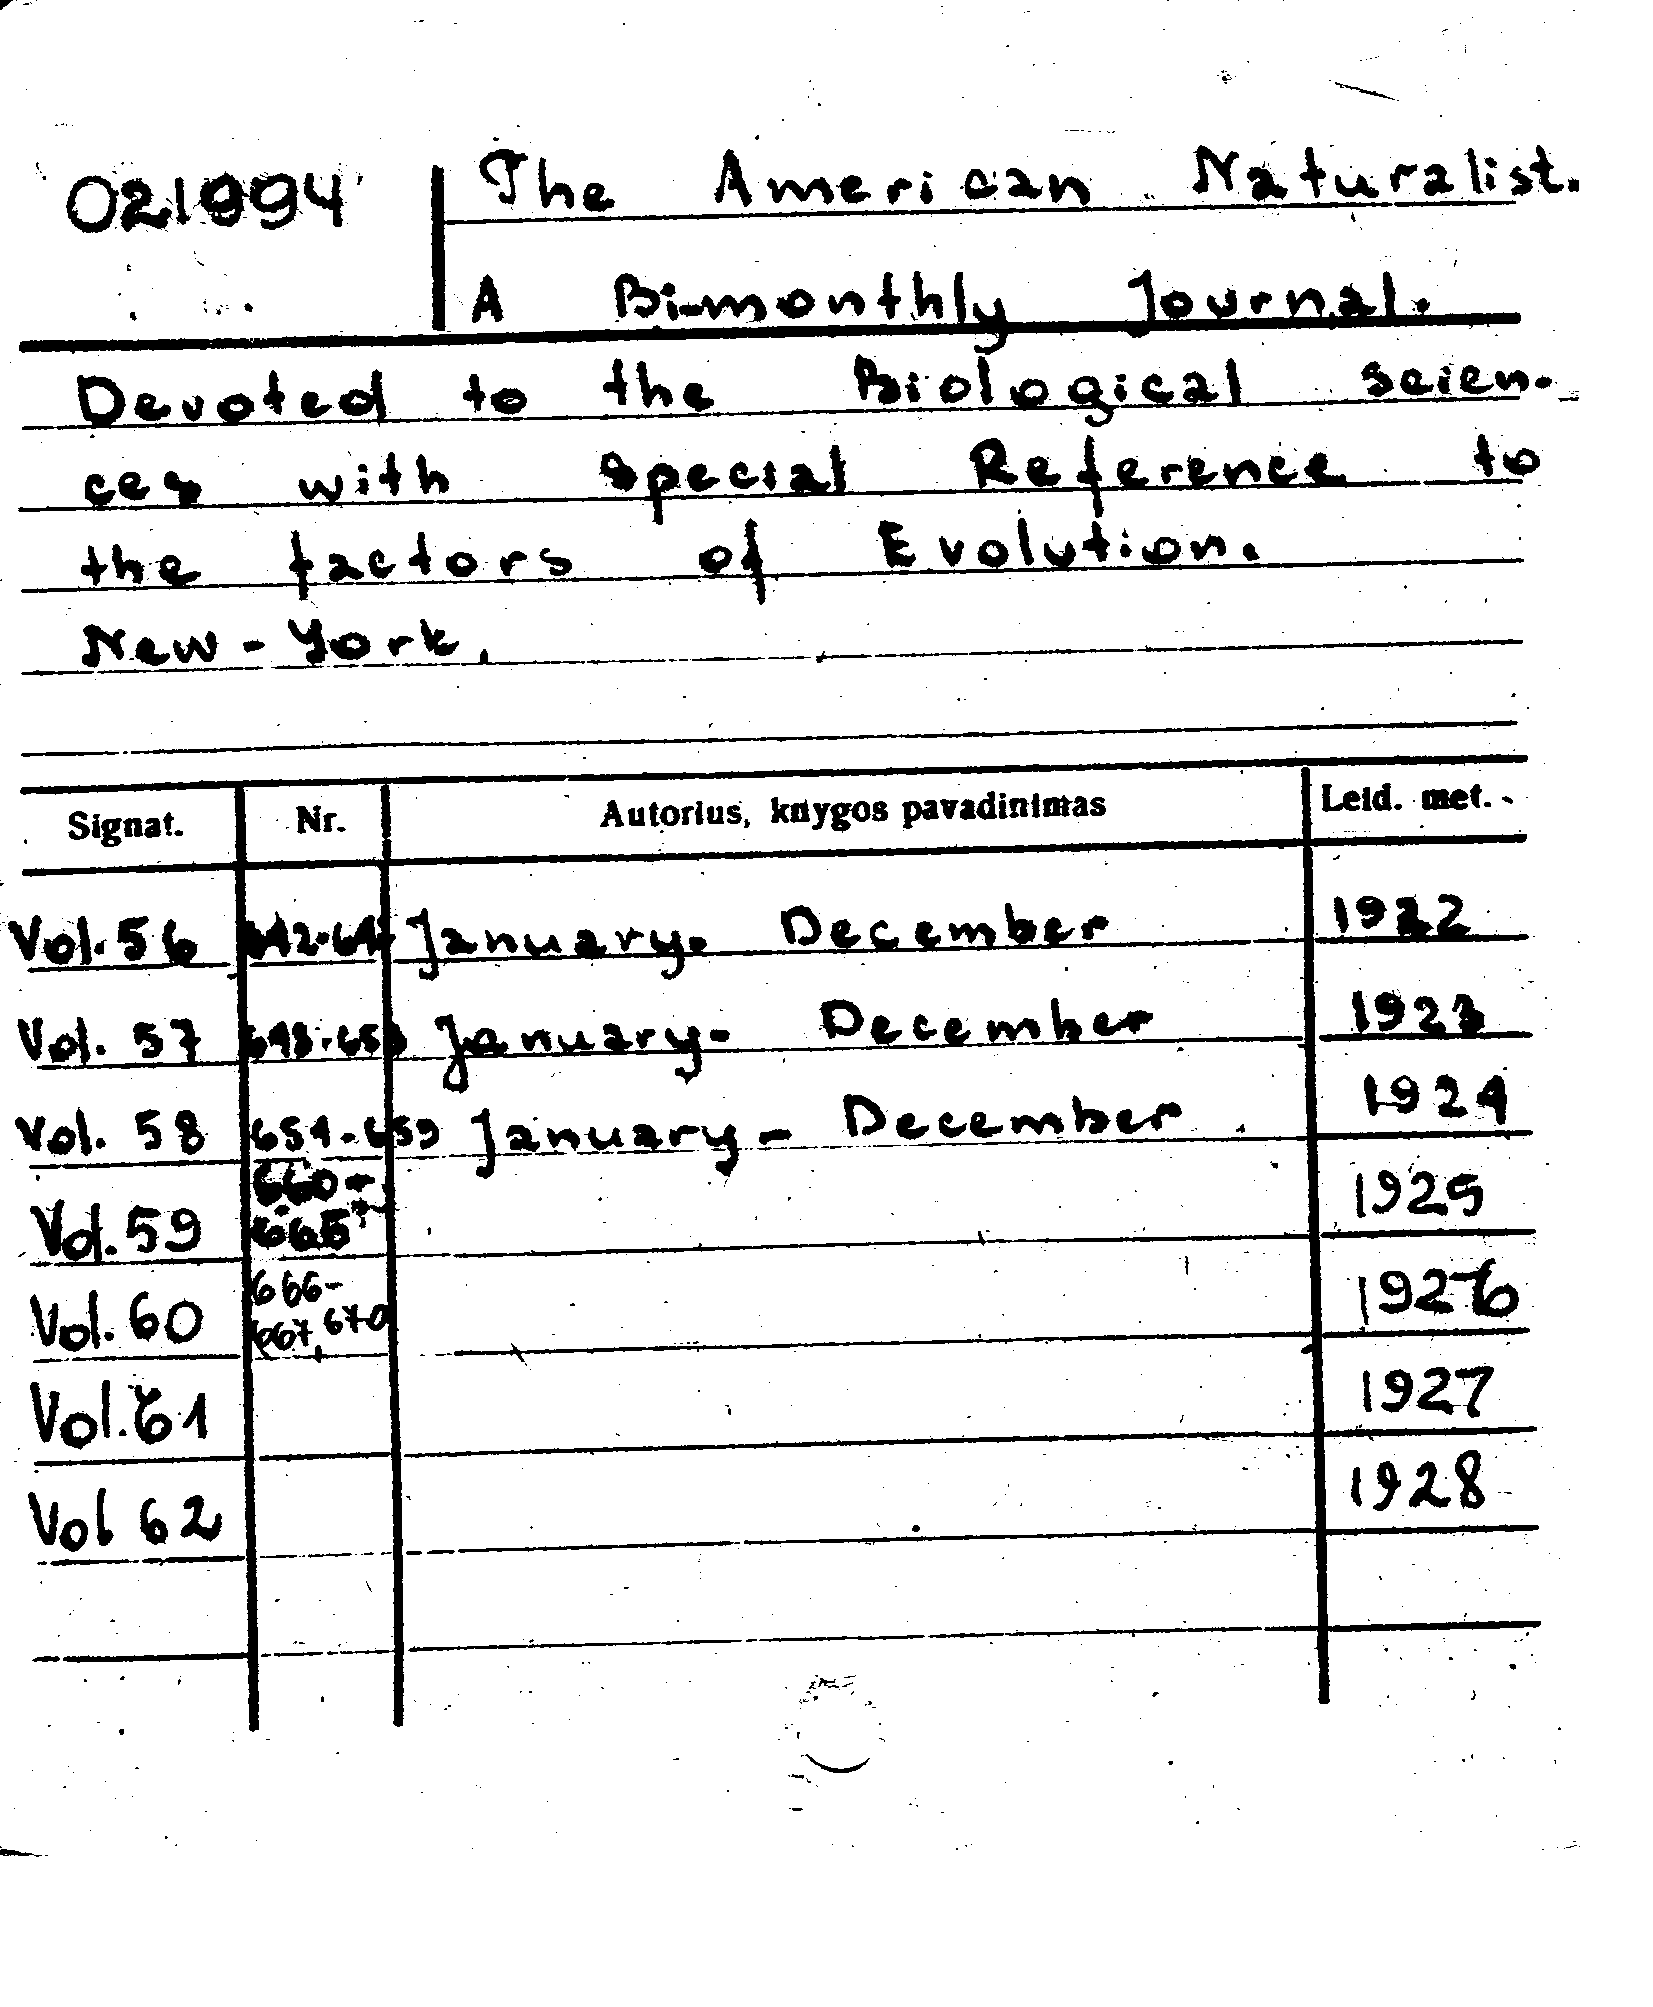 021994 The American Naturalist.
A Bi-monthly Journal.
Devoted to the Biological scien-
ces with special Reference to
the factors of Evolution.
New-York.
Signat. Nr. Autorius, knygos pavadinimas Leid. met.
Vol. 56 January. December 1922
Vol. 57 648-653 January- December 1923
Vol. 58 654-659 January- December 1924
Vol. 59 660-665 1925
Vol. 60 666-667, 670 1926
Vol. 61 1927
Vol 62 1928